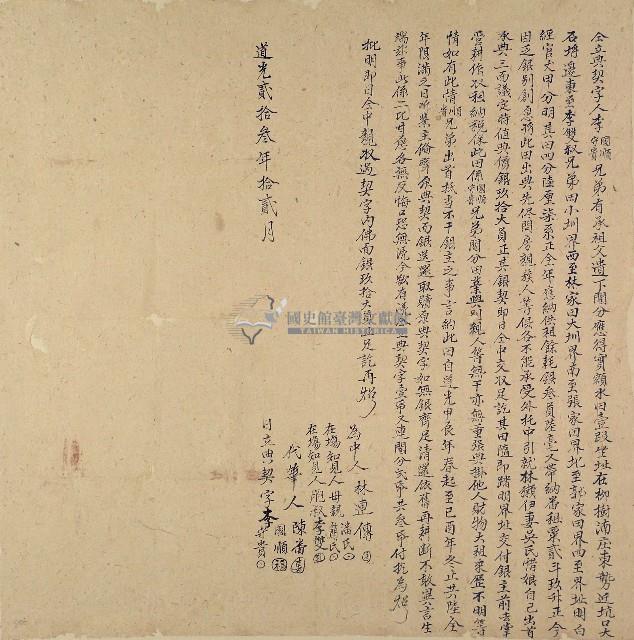 仝立典契字人李國順守貴兄弟有承祖父遺下鬮分應得實額水田壹段坐址在柳樹湳庄東勢近坑口天
石埒邊東至李雙叔兄弟田小圳界西至林家田大圳界南至張家田界北至郭家田界四至界址明白
經官丈甲分明其田四分陸厘柒系正全年應納供租餘耗銀叁員陸臺又帶納番租粟貳斗玖升正今
因乏銀別創愿將此田出典先儘問房親族人等俱各不能承受外托中引就林鑽伊妻吳氏惜娘自己出首
承典三面議定時值典價銀玖拾大員正其銀契即日仝中交收足訖其田隨即踏明界址交付銀主前去掌
管耕作收租納稅保此田係國順守貴兄弟鬮分田業與房親人等無干亦無重張典掛他人財物大租來歷不明等
情如有此情順貴兄弟出首抵當不干銀主之事言約此田自道光甲辰年春起至己酉年冬止共陸全
年限滿之日听業主備齊原典契面銀送還取贖原典契字如無銀齊足清還依舊再耕斷不敢異言生
端滋事此係二比甘愿各無反悔口恐無憑今欲有議仝立典契字壹帋又連鬮分弍帋共叁帋付执為炤
批明即日仝中親收過契字內佛面銀玖拾大員正足訖再炤
為中人 林連傳
在場知見人母親 潘氏 蕭氏
在場知見人胞叔 李雙
代筆人 陳畨
道光貳拾叁年拾貳月 日立典契字李國順守貴
國史館臺灣文獻館
TAIWAN HISTORICA